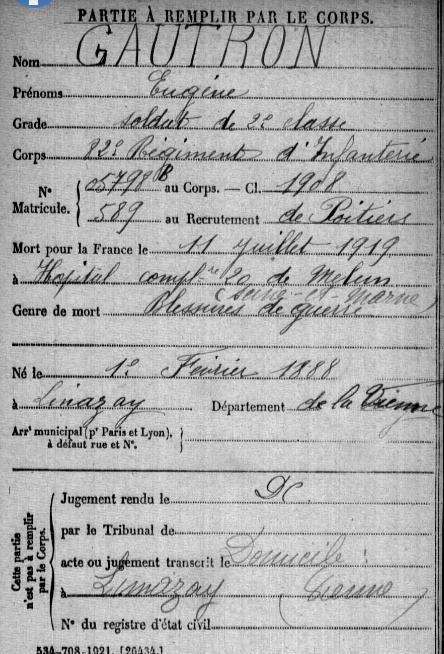 PARTIE À REMPLIR PAR LE CORPS.
Nom GAUTRON
Prénoms Eugène
Grade soldat de 2e classe
Corps 82e Régiment d'Infanterie
Nos Matricule. { 5798 B au Corps. — Cl. 1908
589 au Recrutement de Poitiers
Mort pour la France le 11 juillet 1919
à Hopital complre de Melun
Seine-et-Marne
Genre de mort Blessures de guerre
Né le 1er Février 1888
à Linazay Département de la Vienne
Arrt municipal (pr Paris et Lyon),
à défaut rue et No.
Cette partie n'est pas à remplir par le Corps.
Jugement rendu le
par le Tribunal de
acte ou jugement transcrit le Domicile :
à Linazay
No du registre d'état civil
534-708-1921. [26434.]